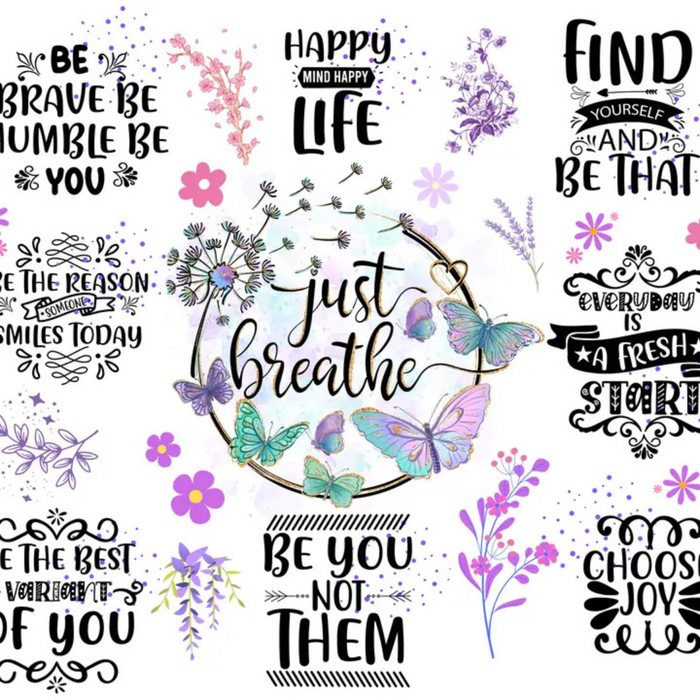 BE
BRAVE BE
HUMBLE BE
YOU
HAPPY
MIND HAPPY
LIFE
FIND
YOURSELF
AND
BE THAT
BE THE REASON
SOMEONE
SMILES TODAY
just
breathe
EVERYDAY
IS
A FRESH
START
BE THE BEST
VARIANT
OF YOU
BE YOU
NOT
THEM
CHOOSE
JOY